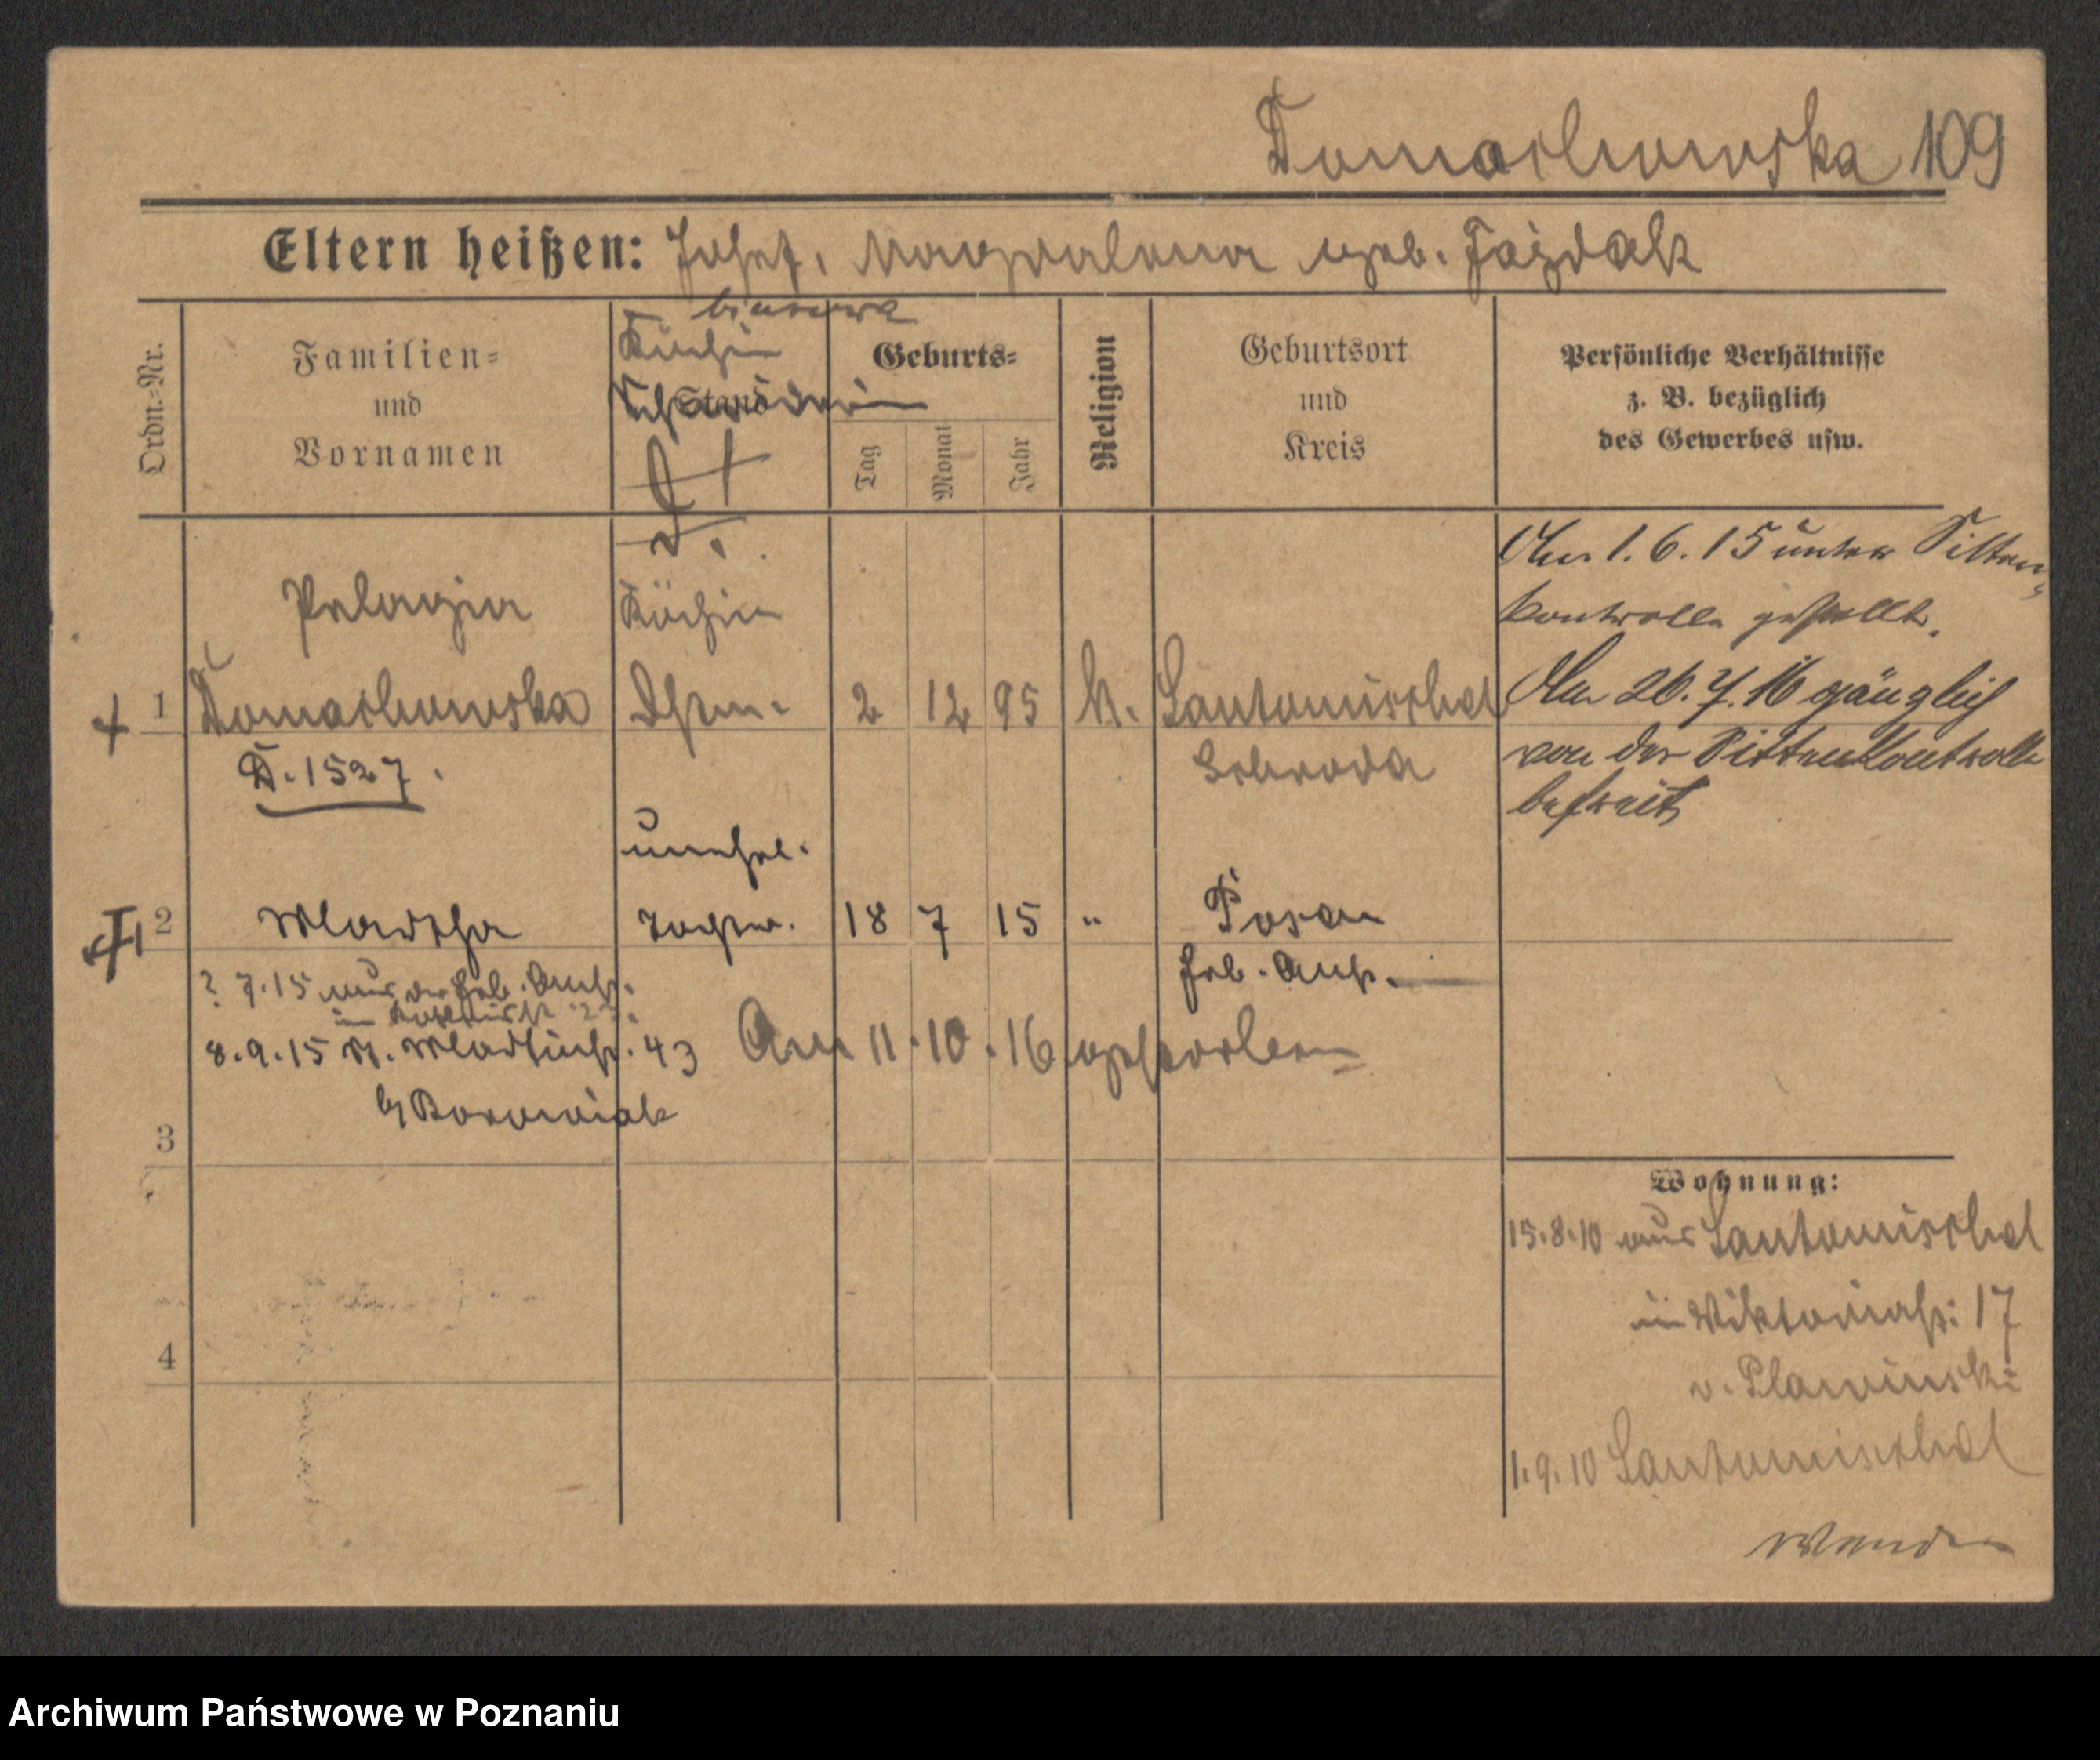 Domachowska 109
Eltern heißen: Josef, Magdalena geb. Fajdak
Ordn.-Nr.
Familien-
und
Vornamen
Stand
Geburts-
Tag
Monat
Jahr
Religion
Geburtsort
und
Kreis
Persönliche Verhältnisse
z. B. bezüglich
des Gewerbes usw.
Am 1.6.15 unter Sitten-
kontrolle gestellt.
Pelagia
Köchin
1 Domachowska
2 12 95 k. Santomischel
Am 26.7.16 gänzlich
D. 1527.
Schroda
von der Sittenkontrolle
befreit
unehel.
2 Wladisa
18 7 15 " Posen
Heb. Anst.
? 7.15 aus der Heb. Anst.
8.9.15 43
Am 11.10.16 gestorben
b/ Borowiak
3
Wohnung:
15.8.10 aus Santomischel
in Viktoriastr. 17
4
v. Plawinski
1.9.10 Santomischel
Wenden
Archiwum Państwowe w Poznaniu